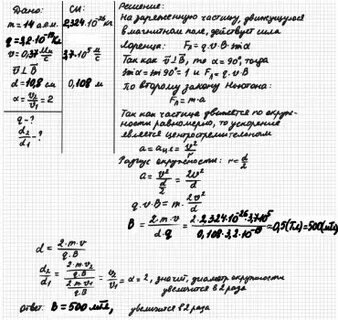 Дано:
m = 14 а.е.м.
q = 3,2·10⁻¹⁹ Кл
v = 0,37 Мм/с
v⃗ ⊥ B⃗
d = 10,8 см
α = v₂/v₁ = 2
q - ?
d₂/d₁ - ?
СИ:
2,324·10⁻²⁶ кг
3,7·10⁵ м/с
0,108 м
Решение:
На заряженную частицу, движущуюся
в магнитном поле, действует сила
Лоренца: Fл = q·v·B·sinα
Так как v⃗ ⊥ B⃗, то α = 90°, тогда
sinα = sin90° = 1 и Fл = q·v·B
По второму закону Ньютона:
Fл = m·a
Так как частица движется по окруж-
ности равномерно, то ускорение
является центростремительным
a = aц.с = v²/r
Радиус окружности: r = d/2
a = v²/(d/2) = 2v²/d
q·v·B = m·2v²/d
B = 2·m·v/(d·q) = 2·2,324·10⁻²⁶·3,7·10⁵/(0,108·3,2·10⁻¹⁹) ≈ 0,5(Тл) = 500(мТл)
d = 2·m·v/(q·B)
d₂/d₁ = (2·m·v₂/(q·B))/(2·m·v₁/(q·B)) = v₂/v₁ = α = 2, значит, диаметр окружности
увеличится в 2 раза
ответ: B = 500 мТл, увеличится в 2 раза